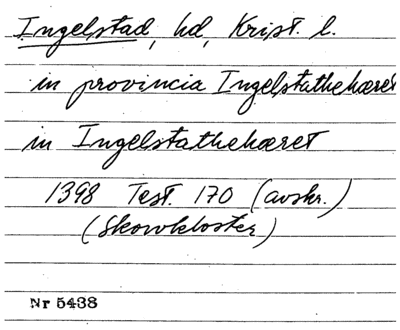 Ingelstad, hd, Krist. l.
in provincia Ingelstathehæret
in Ingelstathehæret
1398 Test. 170 (avskr.)
(Skowkloster)
Nr 5438